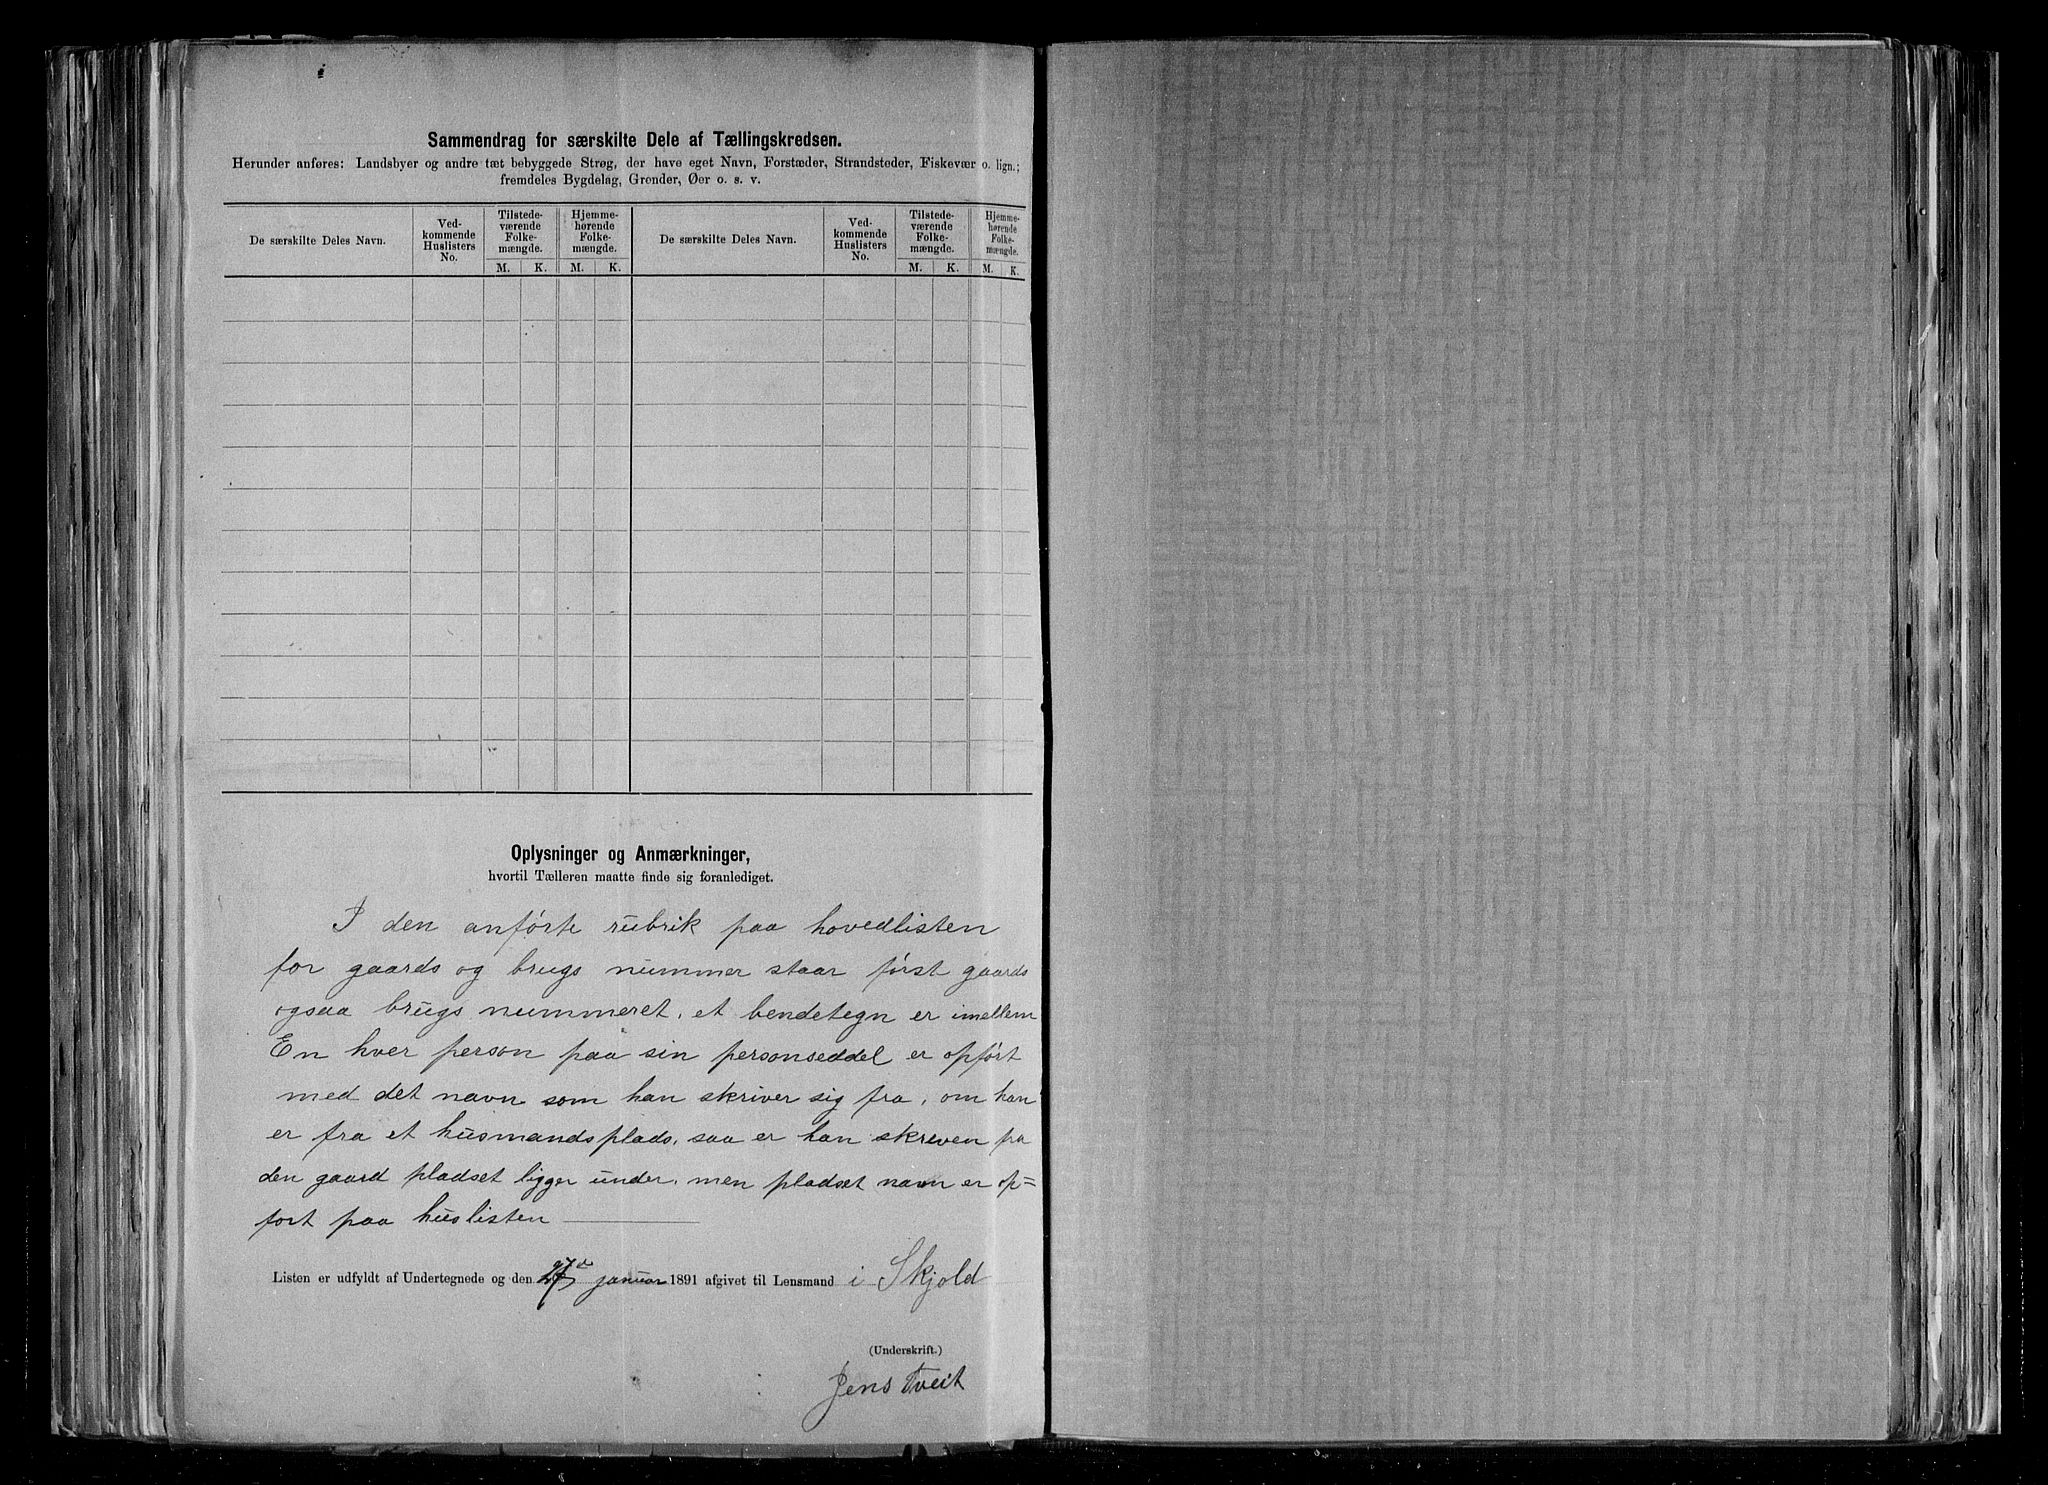 Sammendrag for særskilte Dele af Tællingskredsen.
Herunder anføres: Landsbyer og andre tæt bebyggede Strøg, der have eget Navn, Forstæder, Strandsteder, Fiskevær o. lign.;
fremdeles Bygdelag, Grender, Øer o. s. v.
De særskilte Deles Navn.
Ved-
kommende
Huslisters
No.
Tilstede-
værende
Folke-
mængde.
M. K.
Hjemme-
hørende
Folke-
mængde.
M. K.
De særskilte Deles Navn.
Ved-
kommende
Huslisters
No.
Tilstede-
værende
Folke-
mængde.
M. K.
Hjemme-
hørende
Folke-
mængde.
M. K.
Oplysninger og Anmærkninger,
hvortil Tælleren maatte finde sig foranlediget.
I den anførte rubrik paa hovedlisten
for gaards og brugs nummer staar først gaards
ogsaa brugs nummeret, et bendetegn er imellem
En hver person paa sin personseddel er opført
med det navn som han skriver sig fra, om han
er fra et husmandsplads, saa er han skreven pa
den gaard pladset ligger under, men pladset navn er op=
ført paa huslisten
Listen er udfyldt af Undertegnede og den januar 1891 afgivet til Lensmand i Skjold
(Underskrift.)
Jens Tveit